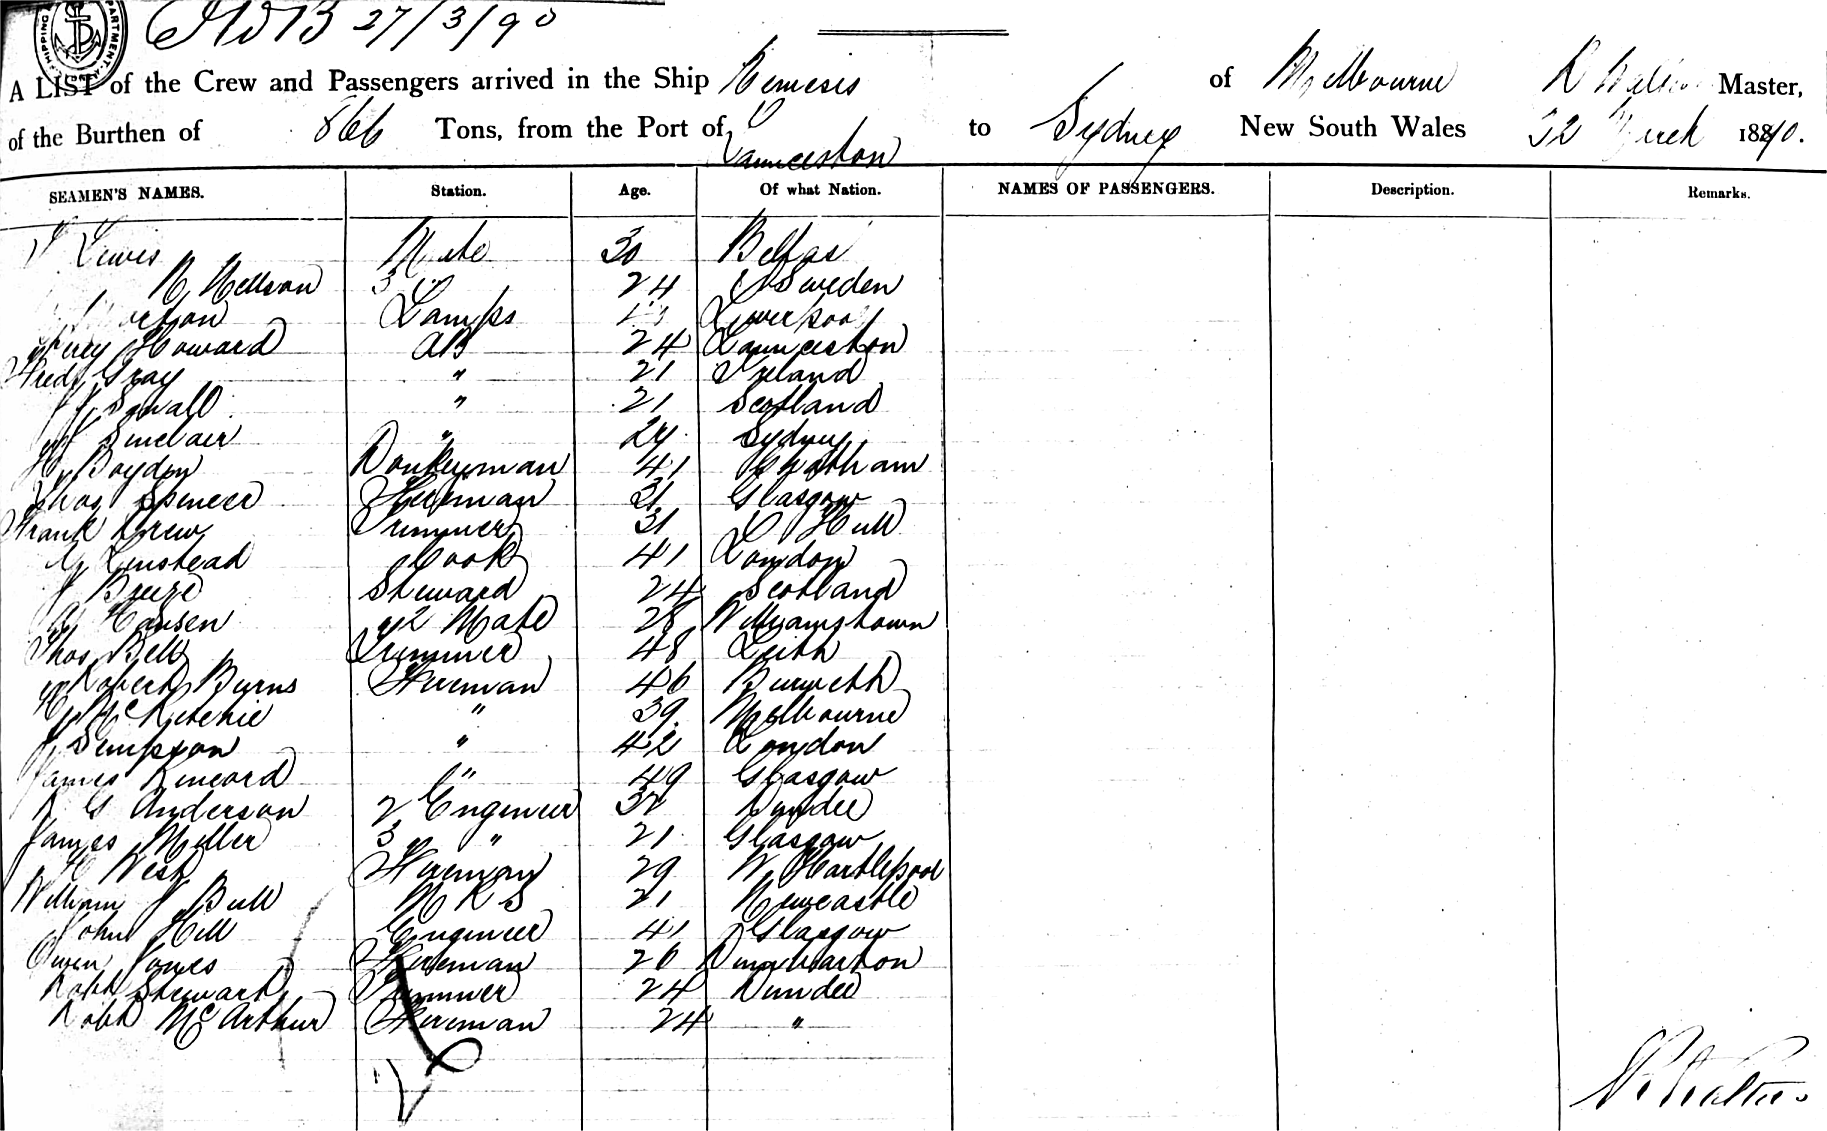 27/3/90
SHIPPING DEPARTMENT
A LIST of the Crew and Passengers arrived in the Ship Nemesis of Melbourne R Master,
of the Burthen of 866 Tons, from the Port of Launceston to Sydney New South Wales 22 March 1890.
SEAMEN'S NAMES. Station. Age. Of what Nation. NAMES OF PASSENGERS. Description. Remarks.
Lewis Mate 30 Belfas
N Nellson 24 Sweden
Lamps Liverpool
Percy Howard AB 24 Launceston
Fredk Gray " 21 Ireland
J Small " 21 Scotland
Sinclair " 24 Sydney
Hy Boydon Donkeyman 41 Chatham
Thos Spencer Fireman 31 Glasgow
Frank Drew Trimmer 31 Hull
Linstead Cook 41 London
J Breeze Steward 24 Scotland
Hansen 2 Mate 28 Williamstown
Thos Bell Trimmer 48 Leith
Robert Burns Fireman 46
McRitchie " 39 Melbourne
J Simpson " 42 London
James Kincard " 49 Glasgow
R G Anderson 2 Engineer 32 Dundee
James Miller 3 " 21 Glasgow
H West Fireman 29 W Hartlepool
William J Bull M R S 21 Newcastle
John Hill Engineer 41 Glasgow
Owen Jones Fireman 26 Dumbarton
Robt Stewart Trimmer 24 Dundee
Robt McArthur Fireman 24 "